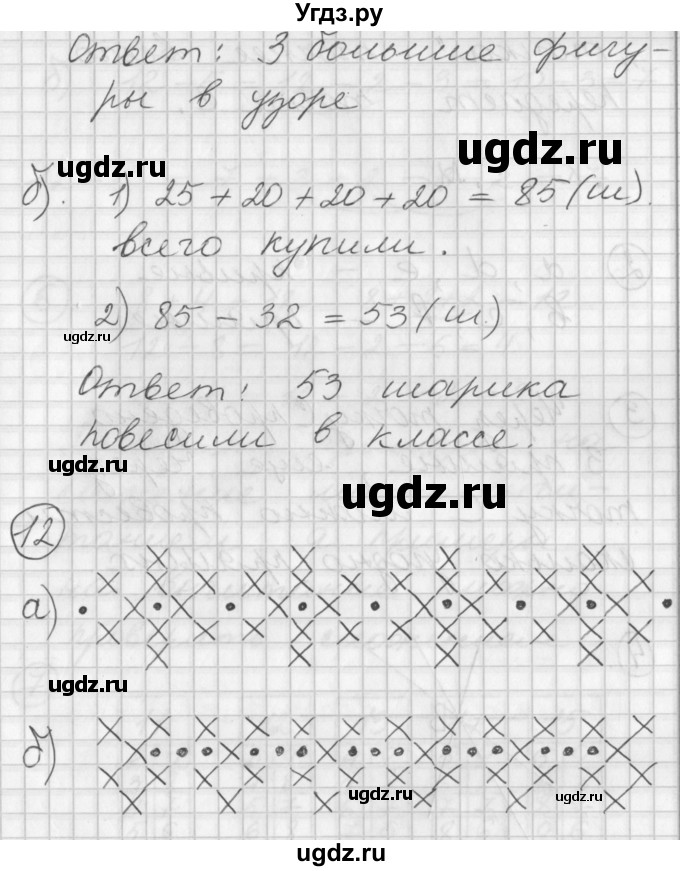 Угдз.ру
Ответ: 3 большие фигу-
ры в узоре
ugdz.ru
ugdz.ru
б). 1) 25 + 20 + 20 + 20 = 85 (ш).
всего купили.
2) 85 - 32 = 53 (ш.)
ugdz.ru
Ответ: 53 шарика
повесили в классе.
ugdz.ru
ugdz.ru
12
а)
ugdz.ru
б)
ugdz.ru
ugdz.ru
ugdz.ru